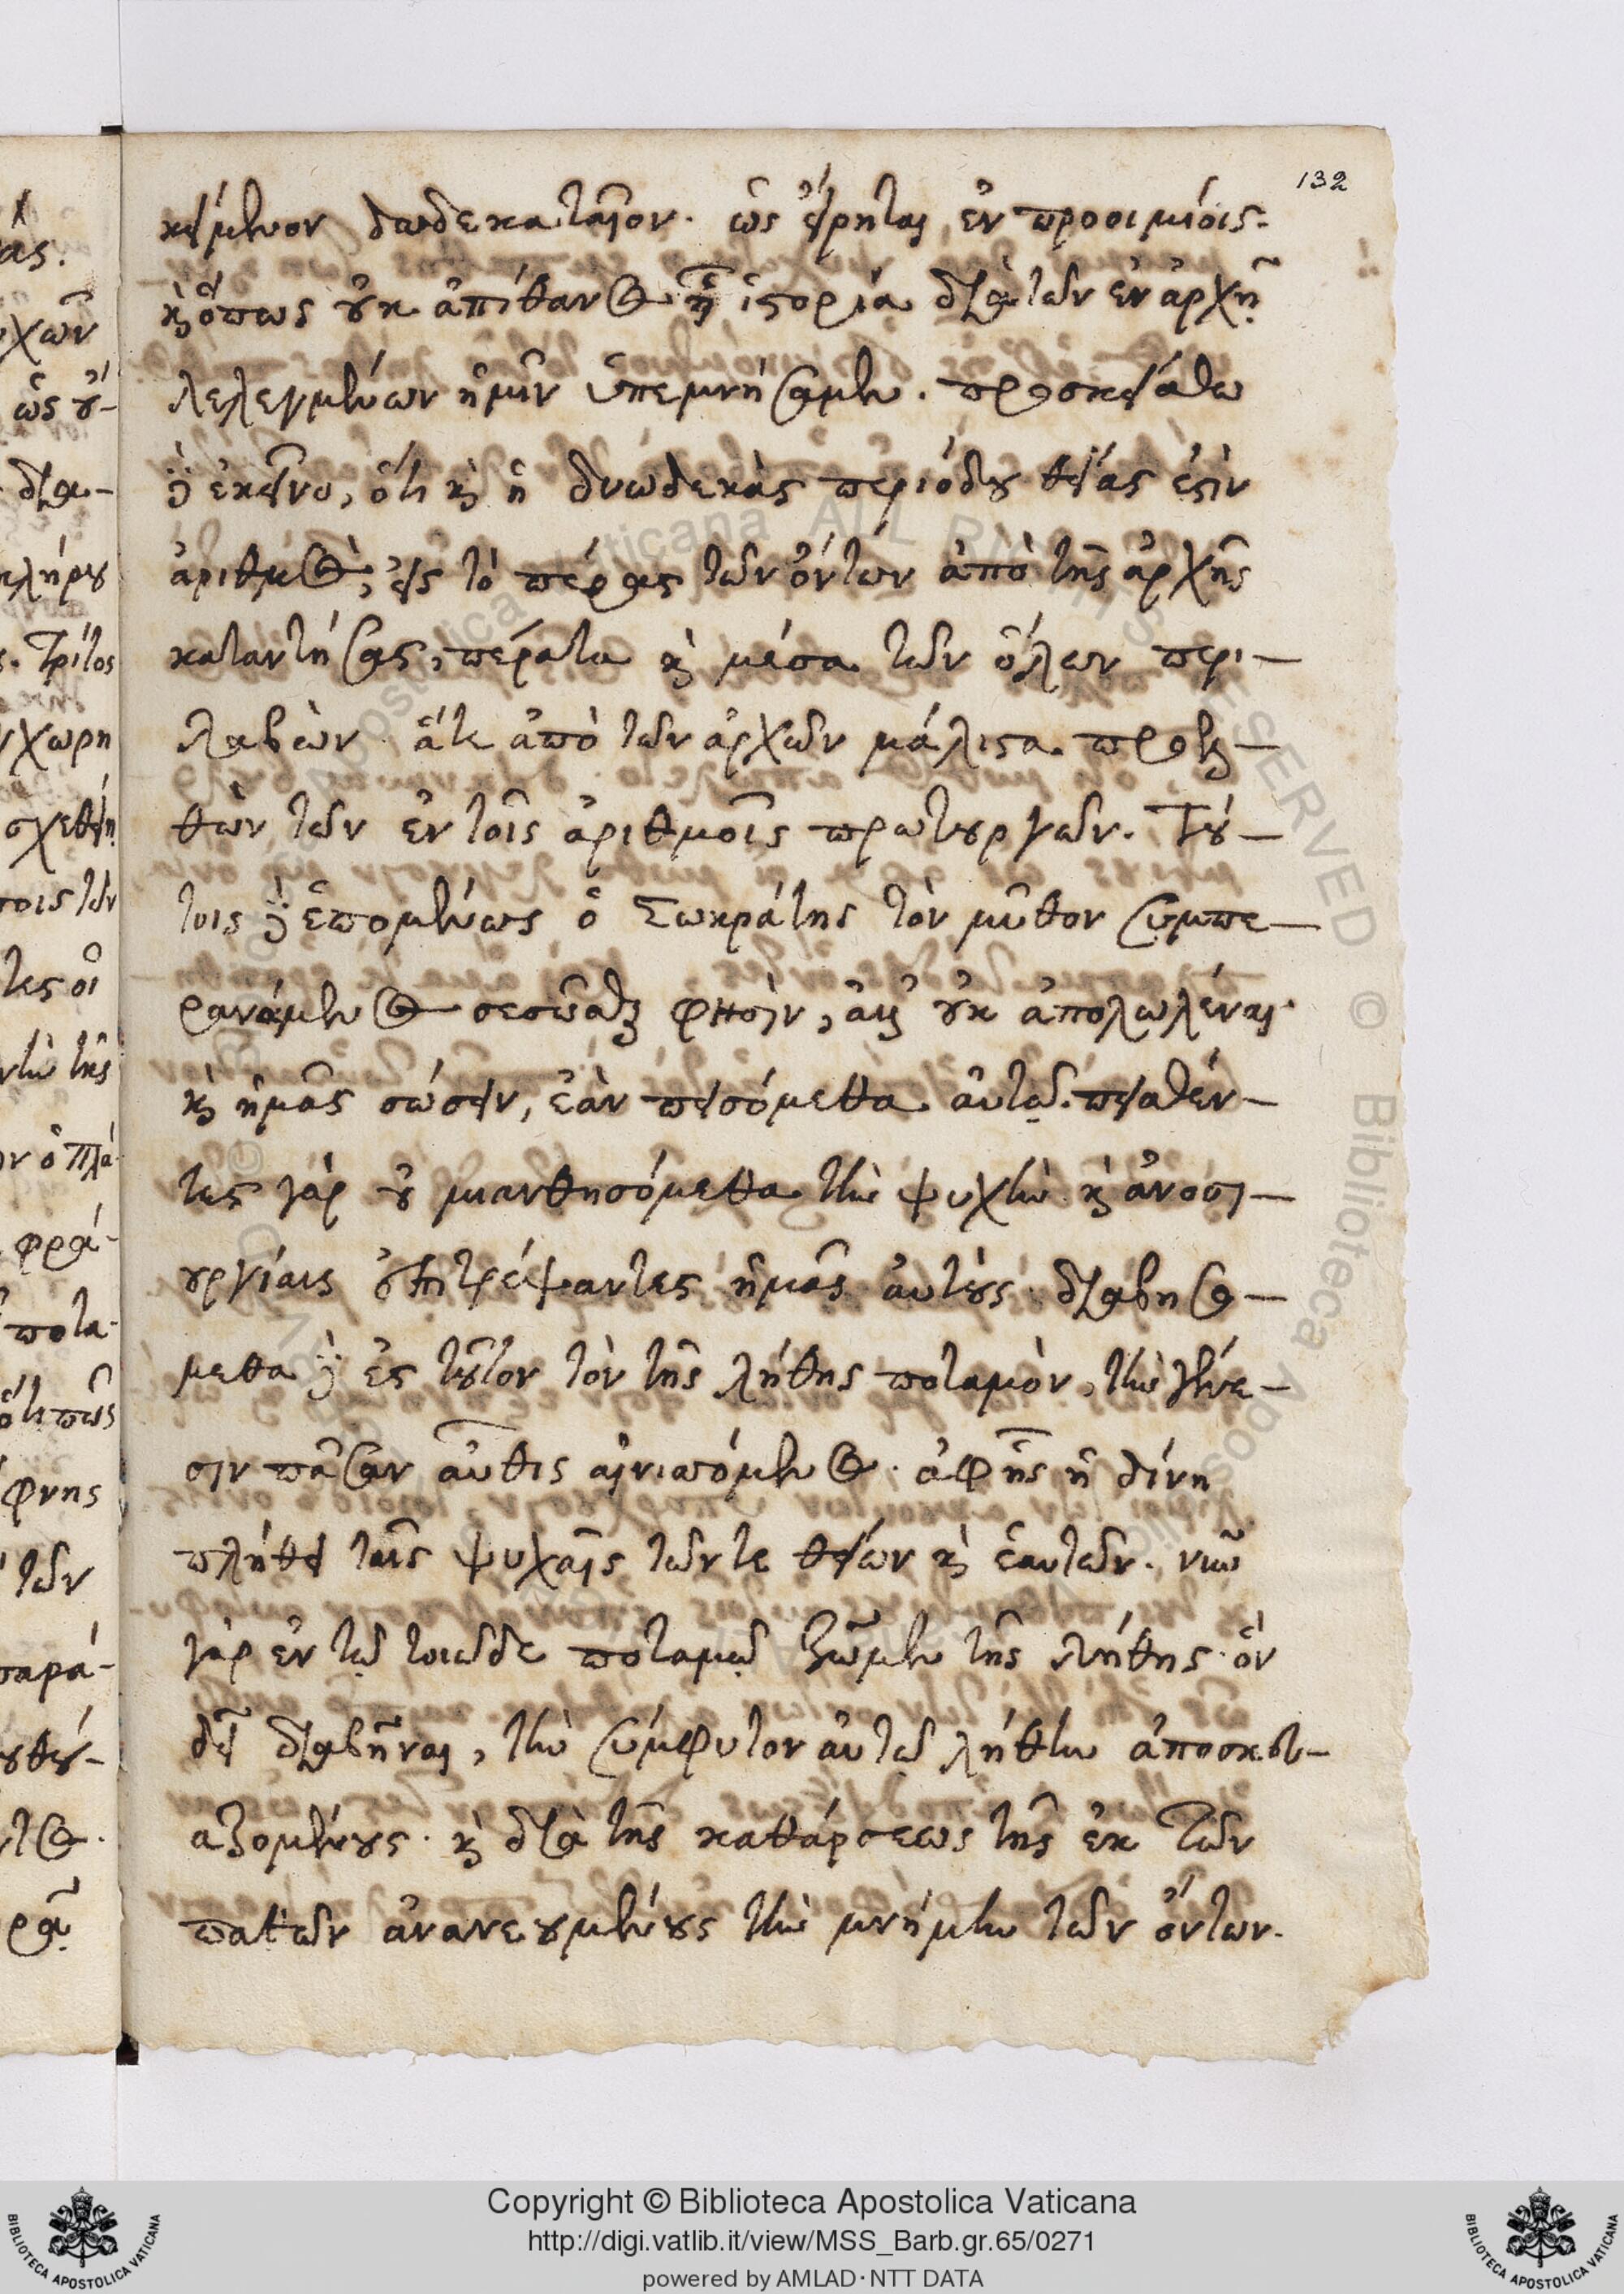 132
κείμενον δωδεκαταῖον. ὡς εἴρηται ἐν προοιμίοις.
καὶ ὅπως οὐκ ἀπίθανος ἡ ἱστορία διὰ τῶν ἐν ἀρχῇ
λελεγμένων ἡμῖν ὑπεμνήσαμεν. προσκείσθω
δὲ ἐκεῖνο, ὅτι καὶ ἡ δυωδεκὰς περιόδου θείας ἐστὶν
ἀριθμὸς, εἰς τὸ πέρας τῶν ὄντων ἀπὸ τῆς ἀρχῆς
καταντήσας, πέρατα καὶ μέσα τῶν ὅλων περι-
λαβὼν ἅτε ἀπὸ τῶν ἀρχῶν μάλιστα προελ-
θὼν τῶν ἐν τοῖς ἀριθμοῖς πρωτουργῶν. Τού-
τοις δὲ ἑπομένως ὁ Σωκράτης τὸν μῦθον συμπε-
ρανάμενος σεσῶσθαι φησὶν, ἀλλ' οὐκ ἀπολωλέναι.
καὶ ἡμᾶς σώσειν, ἐὰν πεισόμεθα αὐτῷ. πεισθέν-
τες γὰρ οὐ μιανθησόμεθα τὴν ψυχὴν καὶ ἀνοσι-
ουργίαις ἐπιτρέψαντες ἡμᾶς αὐτούς. διαβησό-
μεθα δὲ ἐς τοῦτον τὸν τῆς λήθης ποταμὸν, τὴν γένε-
σιν πᾶσαν αὖθις αἰνιττόμενος. ἀφ' ἧς ἡ δίνη
πλήθει ταῖς ψυχαῖς τῶν τε θείων καὶ ἑαυτῶν. νῦν
γὰρ ἐν τῷ τοιῷδε ποταμῷ ζῶμεν τῆς λήθης. ὃν
δεῖ διαβῆναι, τὴν σύμφυτον αὐτῷ λήθην ἀποσκευ-
αζομένους. καὶ διὰ τῆς καθάρσεως τῆς ἐκ τῶν
παθῶν ἀνανεουμένους τὴν μνήμην τῶν ὄντων.
Copyright © Biblioteca Apostolica Vaticana
http://digi.vatlib.it/view/MSS_Barb.gr.65/0271
powered by AMLAD·NTT DATA